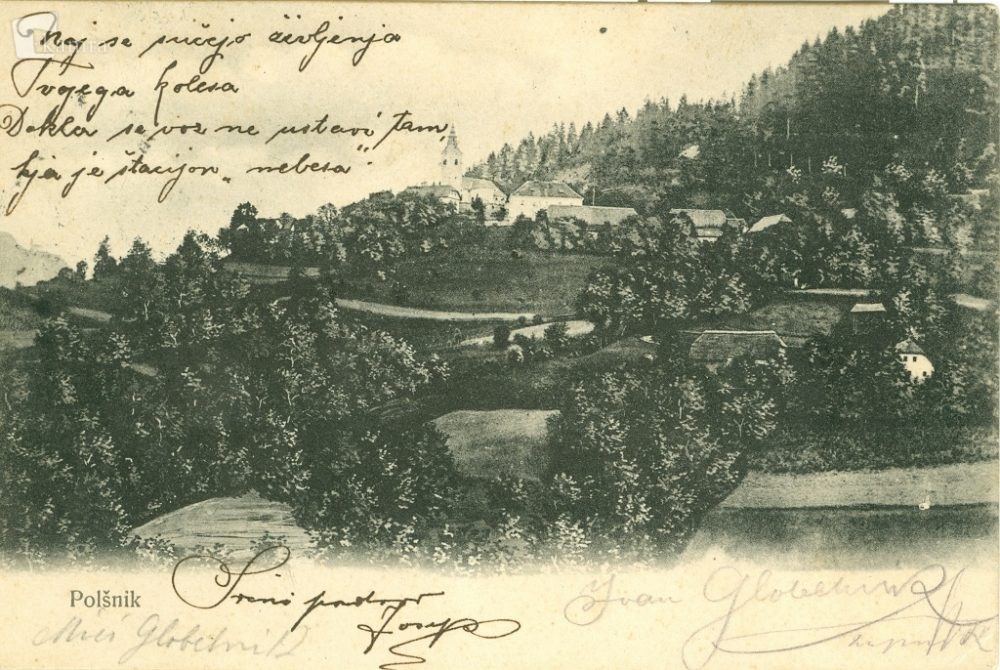 Naj se sučejo življenja
Tvojega kolesa
Dokler se voz ne ustavi tam,
kjer je štacijon „nebesa“.
Polšnik
pozdrav
Josip
Ivan Globelnik
Globelnik